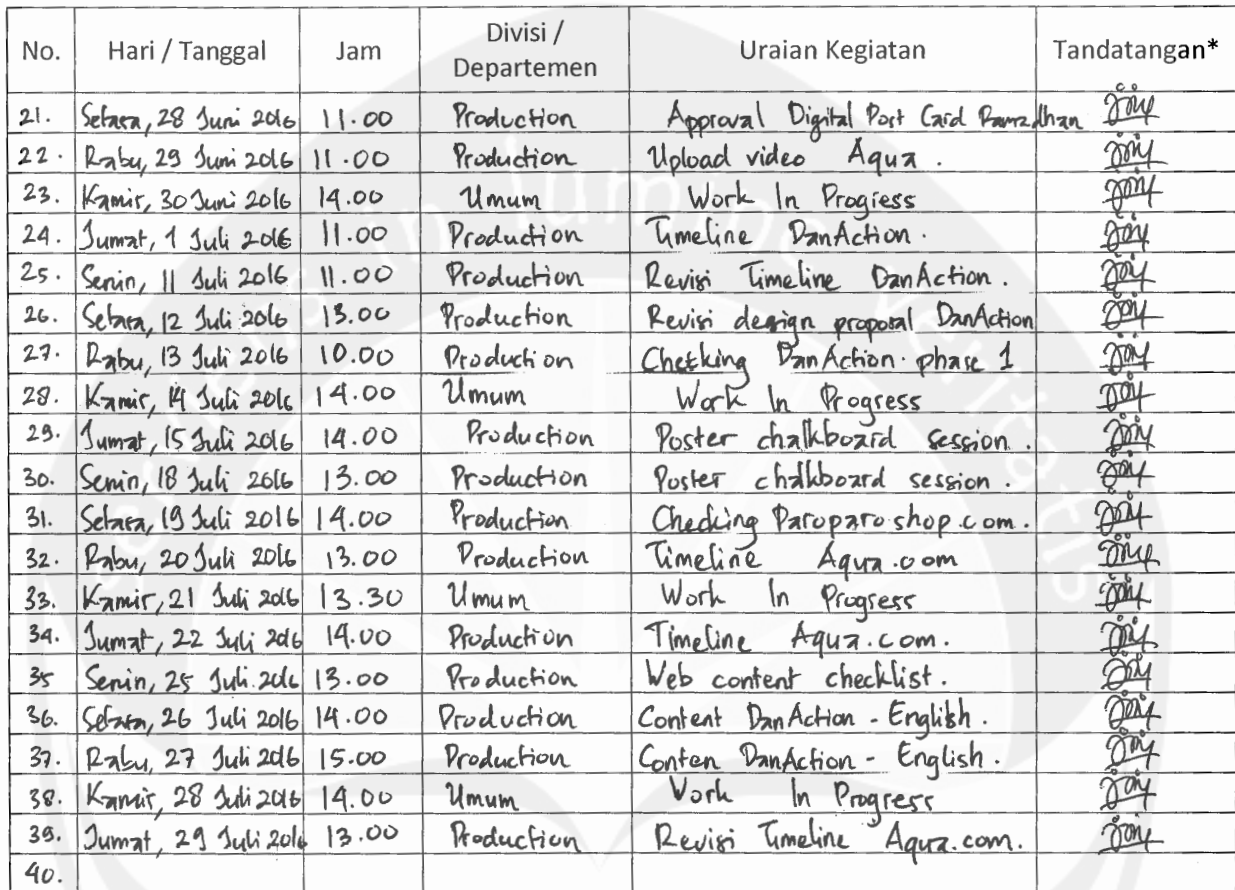 No. Hari / Tanggal Jam Divisi / Departemen Uraian Kegiatan Tandatangan*
21. Selasa, 28 Juni 2016 11.00 Production Approval Digital Post Card Ramadhan
22. Rabu, 29 Juni 2016 11.00 Production Upload video Aqua.
23. Kamis, 30 Juni 2016 14.00 Umum Work In Progress
24. Jumat, 1 Juli 2016 11.00 Production Timeline DanAction.
25. Senin, 11 Juli 2016 11.00 Production Revisi Timeline DanAction.
26. Selasa, 12 Juli 2016 13.00 Production Revisi design proposal DanAction
27. Rabu, 13 Juli 2016 10.00 Production Checking DanAction phase 1
28. Kamis, 14 Juli 2016 14.00 Umum Work In Progress
29. Jumat, 15 Juli 2016 14.00 Production Poster chalkboard session.
30. Senin, 18 Juli 2016 13.00 Production Poster chalkboard session.
31. Selasa, 19 Juli 2016 14.00 Production Checking Paroparoshop.com.
32. Rabu, 20 Juli 2016 13.00 Production Timeline Aqua.com
33. Kamis, 21 Juli 2016 13.30 Umum Work In Progress
34. Jumat, 22 Juli 2016 14.00 Production Timeline Aqua.com.
35 Senin, 25 Juli 2016 13.00 Production Web content checklist.
36. Selasa, 26 Juli 2016 14.00 Production Content DanAction - English.
37. Rabu, 27 Juli 2016 15.00 Production Conten DanAction - English.
38. Kamis, 28 Juli 2016 14.00 Umum Work In Progress
39. Jumat, 29 Juli 2016 13.00 Production Revisi Timeline Aqua.com.
40.